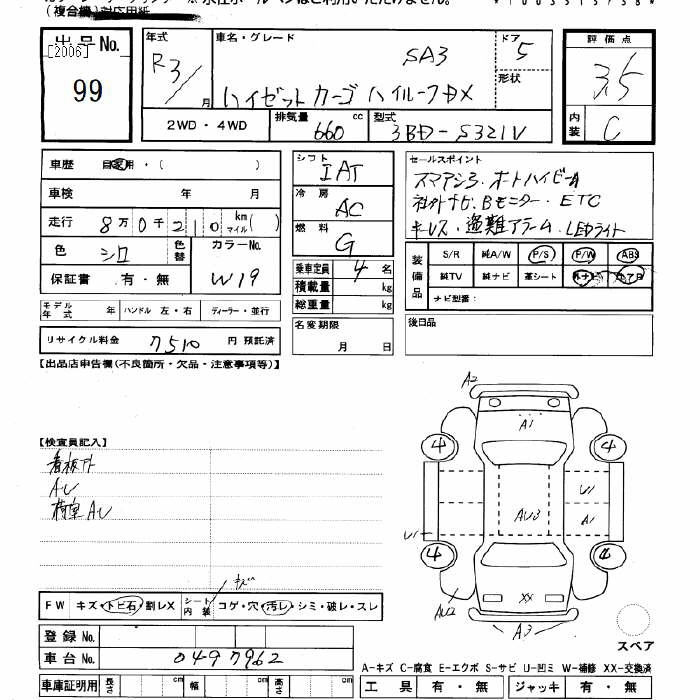 (複合機)対応用紙
出品No. [2006] 99
年式 R3/ 月
車名・グレード SA3 ハイゼットカーゴ ハイルーフDX
ドア 5
形状
評価点 3.5
内装 C
2WD・4WD
排気量 660 cc
型式 3BD-S321V
車歴 自家用・( )
車検 年 月
走行 8万0千210 km マイル( )
色 シロ 色替 カラーNo. W19
保証書 有・無
モデル年式 年 ハンドル 左・右 ディーラー・並行
リサイクル料金 7510 円 預託済
シフト IAT
冷房 AC
燃料 G
乗車定員 4 名
積載量 kg
総重量 kg
名変期限 月 日
セールスポイント
スマアシ3.オートハイビーム
社外ナビ.Bモニター.ETC
キーレス.盗難アラーム.LEDライト
装備品 S/R 純A/W P/S P/W ABS
純TV 純ナビ 革シート
ナビ型番:
後日品
【出品店申告欄(不良箇所・欠品・注意事項等)】
【検査員記入】
看板ケ
AU
荷室AU
A2
A1
4 4
U1
AU3 A1
U1
4 4
XX
AU2
A3
スペア
キズ
FW キズ・トビ石・割レX シート内装 コゲ・穴・汚レ・シミ・破レ・スレ
登録No.
車台No. 0497962
車庫証明用 長さ cm 幅 cm 高さ cm
A-キズ C-腐食 E-エクボ S-サビ U-凹ミ W-補修 XX-交換済
工具 有・無 ジャッキ 有・無